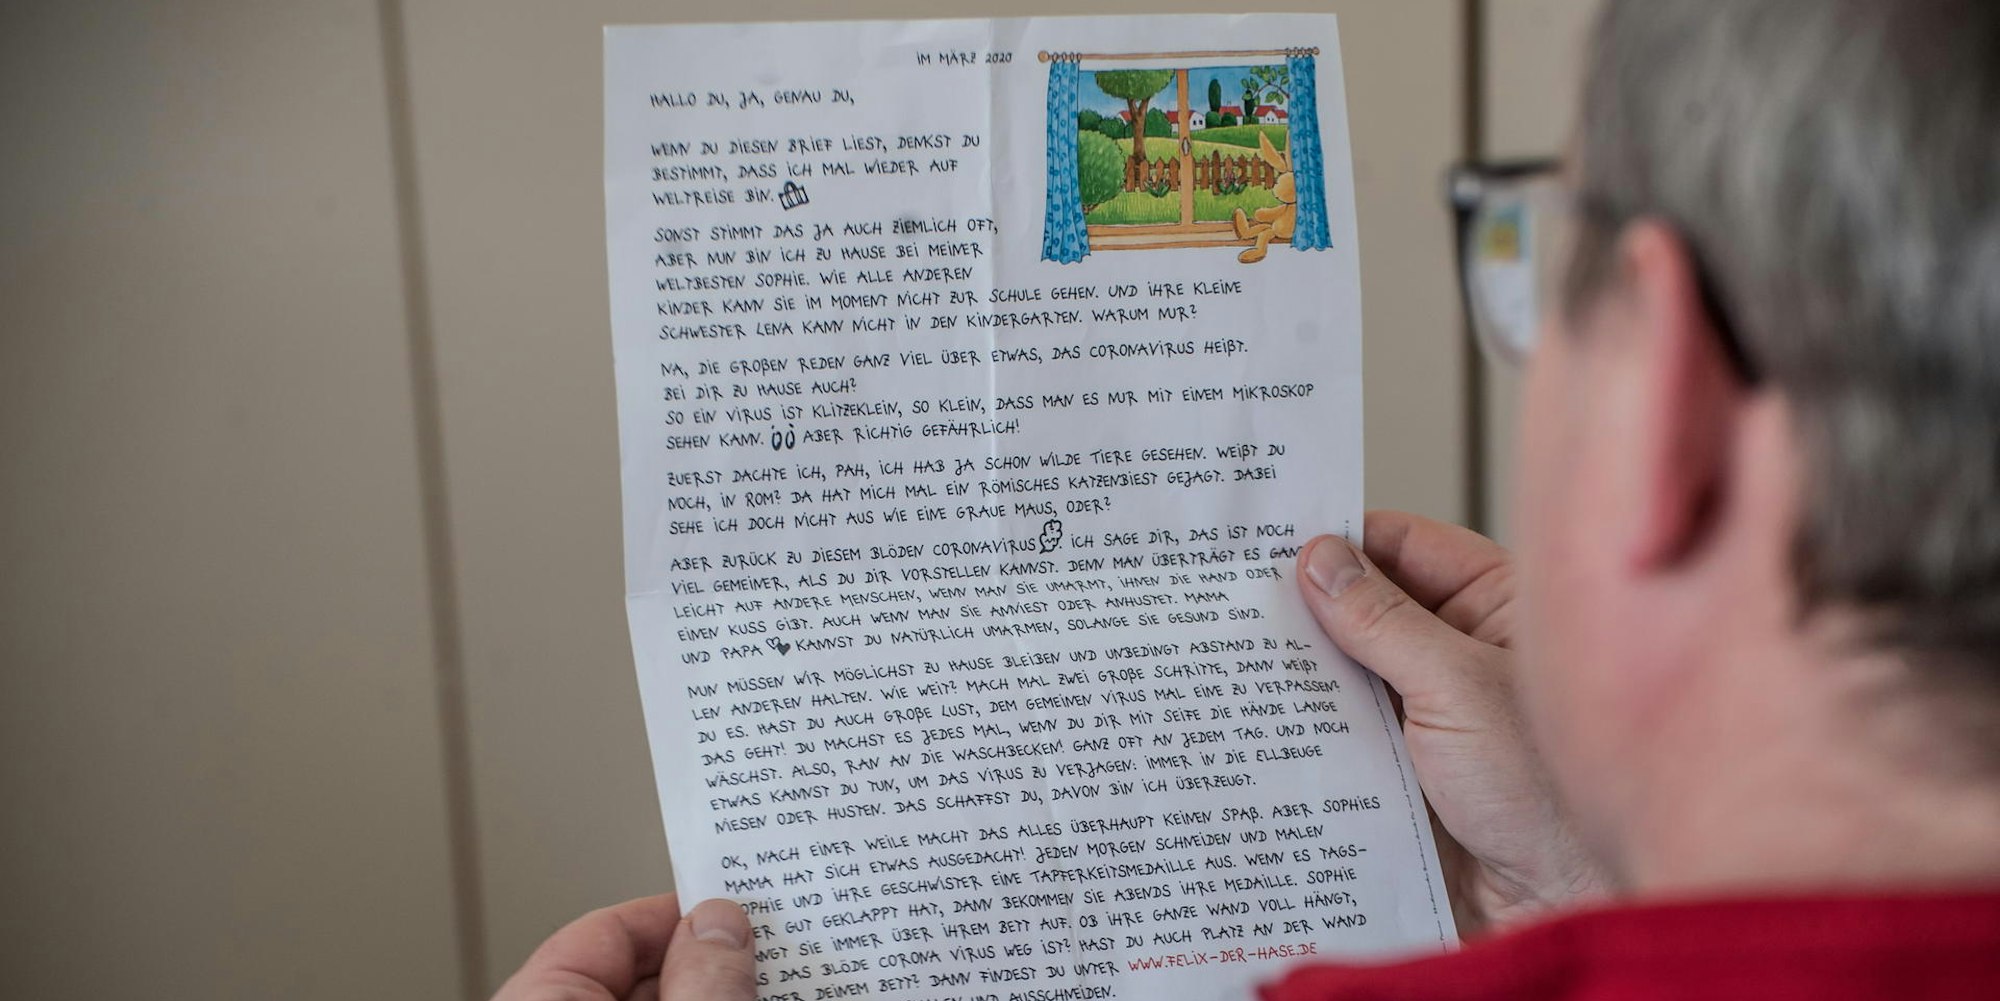 IM MÄRZ 2020
HALLO DU, JA, GENAU DU,
WENN DU DIESEN BRIEF LIEST, DENKST DU
BESTIMMT, DASS ICH MAL WIEDER AUF
WELTREISE BIN.
SONST STIMMT DAS JA AUCH ZIEMLICH OFT,
ABER NUN BIN ICH ZU HAUSE BEI MEINER
WELTBESTEN SOPHIE. WIE ALLE ANDEREN
KINDER KANN SIE IM MOMENT NICHT ZUR SCHULE GEHEN. UND IHRE KLEINE
SCHWESTER LENA KANN NICHT IN DEN KINDERGARTEN. WARUM NUR?
NA, DIE GROßEN REDEN GANZ VIEL ÜBER ETWAS, DAS CORONAVIRUS HEIßT.
BEI DIR ZU HAUSE AUCH?
SO EIN VIRUS IST KLITZEKLEIN, SO KLEIN, DASS MAN ES NUR MIT EINEM MIKROSKOP
SEHEN KANN. ABER RICHTIG GEFÄHRLICH!
ZUERST DACHTE ICH, PAH, ICH HAB JA SCHON WILDE TIERE GESEHEN. WEIßT DU
NOCH, IN ROM? DA HAT MICH MAL EIN RÖMISCHES KATZENBIEST GEJAGT. DABEI
SEHE ICH DOCH NICHT AUS WIE EINE GRAUE MAUS, ODER?
ABER ZURÜCK ZU DIESEM BLÖDEN CORONAVIRUS. ICH SAGE DIR, DAS IST NOCH
VIEL GEMEINER, ALS DU DIR VORSTELLEN KANNST. DENN MAN ÜBERTRÄGT ES GANZ
LEICHT AUF ANDERE MENSCHEN, WENN MAN SIE UMARMT, IHNEN DIE HAND ODER
EINEN KUSS GIBT. AUCH WENN MAN SIE ANNIEST ODER ANHUSTET. MAMA
UND PAPA KANNST DU NATÜRLICH UMARMEN, SOLANGE SIE GESUND SIND.
NUN MÜSSEN WIR MÖGLICHST ZU HAUSE BLEIBEN UND UNBEDINGT ABSTAND ZU AL-
LEN ANDEREN HALTEN. WIE WEIT? MACH MAL ZWEI GROßE SCHRITTE, DANN WEIßT
DU ES. HAST DU AUCH GROßE LUST, DEM GEMEINEN VIRUS MAL EINE ZU VERPASSEN?
DAS GEHT! DU MACHST ES JEDES MAL, WENN DU DIR MIT SEIFE DIE HÄNDE LANGE
WÄSCHST. ALSO, RAN AN DIE WASCHBECKEN! GANZ OFT AN JEDEM TAG. UND NOCH
ETWAS KANNST DU TUN, UM DAS VIRUS ZU VERJAGEN: IMMER IN DIE ELLBEUGE
NIESEN ODER HUSTEN. DAS SCHAFFST DU, DAVON BIN ICH ÜBERZEUGT.
OK, NACH EINER WEILE MACHT DAS ALLES ÜBERHAUPT KEINEN SPAß. ABER SOPHIES
MAMA HAT SICH ETWAS AUSGEDACHT! JEDEN MORGEN SCHNEIDEN UND MALEN
OPHIE UND IHRE GESCHWISTER EINE TAPFERKEITSMEDAILLE AUS. WENN ES TAGS-
ER GUT GEKLAPPT HAT, DANN BEKOMMEN SIE ABENDS IHRE MEDAILLE. SOPHIE
NGT SIE IMMER ÜBER IHREM BETT AUF. OB IHRE GANZE WAND VOLL HÄNGT,
S DAS BLÖDE CORONA VIRUS WEG IST? HAST DU AUCH PLATZ AN DER WAND
DEINEM BETT? DANN FINDEST DU UNTER WWW.FELIX-DER-HASE.DE
UND AUSSCHNEIDEN.